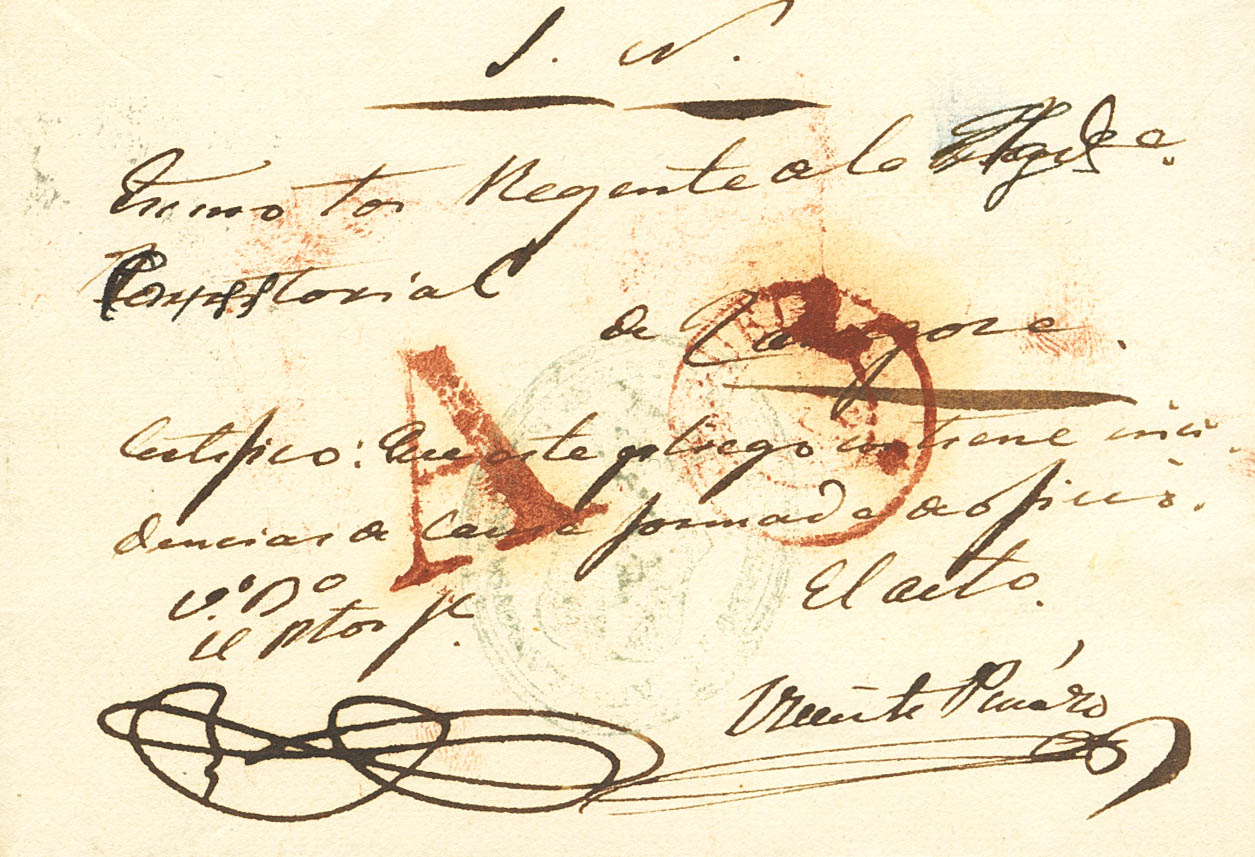 S. N.
Exmo Sor Regente de la
Territorial
de Zaragoza.
Certifico: Que este pliego contiene inci-
dencias de causa formada de oficio.
V.º B.º
El actº.
El Ptor fl.
Vicente Pinázo
A